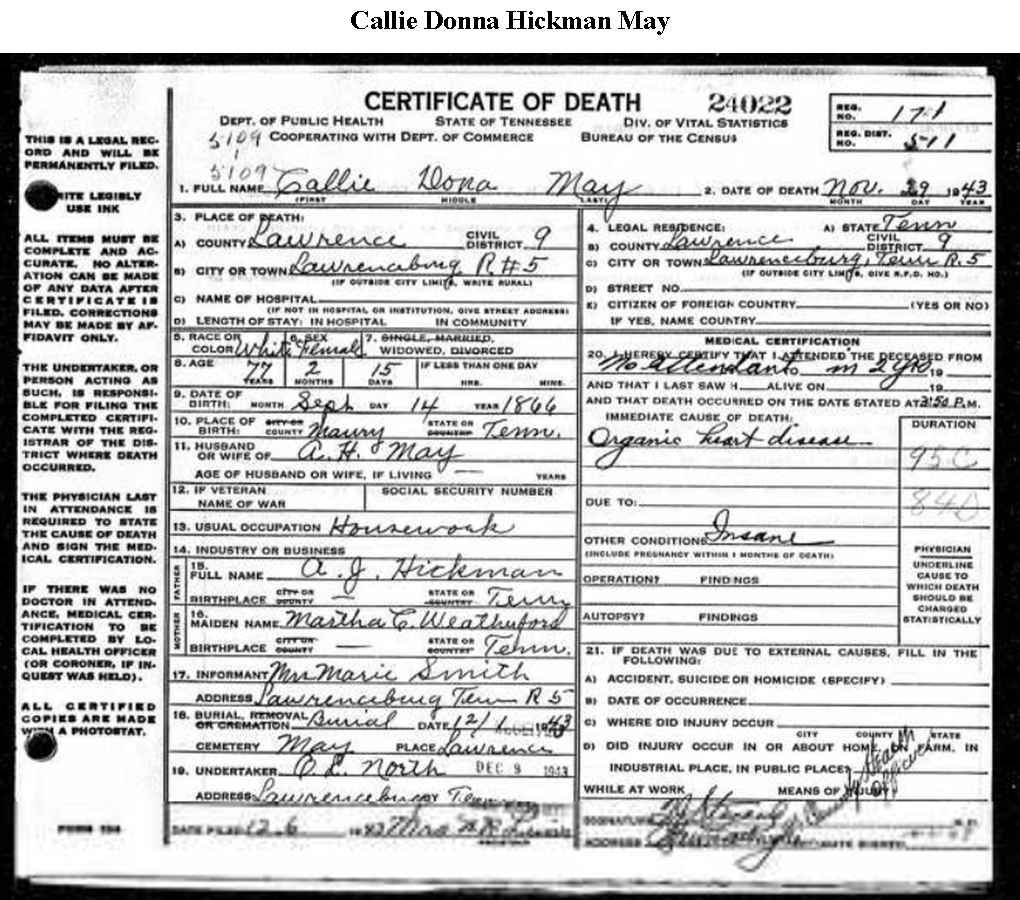 Callie Donna Hickman May
CERTIFICATE OF DEATH 24022
DEPT. OF PUBLIC HEALTH STATE OF TENNESSEE DIV. OF VITAL STATISTICS
COOPERATING WITH DEPT. OF COMMERCE BUREAU OF THE CENSUS
REG. NO. 171
REG. DIST. NO. 511
5109
1
5109
THIS IS A LEGAL RECORD AND WILL BE PERMANENTLY FILED.
WRITE LEGIBLY
USE INK
ALL ITEMS MUST BE
COMPLETE AND AC-
CURATE. NO ALTER-
ATION CAN BE MADE
OF ANY DATA AFTER
CERTIFICATE IS
FILED. CORRECTIONS
MAY BE MADE BY AF-
FIDAVIT ONLY.
THE UNDERTAKER, OR
PERSON ACTING AS
SUCH, IS RESPONSI-
BLE FOR FILING THE
COMPLETED CERTIFI-
CATE WITH THE REG-
ISTRAR OF THE DIS-
TRICT WHERE DEATH
OCCURRED.
THE PHYSICIAN LAST
IN ATTENDANCE IS
REQUIRED TO STATE
THE CAUSE OF DEATH
AND SIGN THE MED-
ICAL CERTIFICATION.
IF THERE WAS NO
DOCTOR IN ATTEND-
ANCE, MEDICAL CER-
TIFICATION TO BE
COMPLETED BY LO-
CAL HEALTH OFFICER
(OR CORONER, IF IN-
QUEST WAS HELD).
ALL CERTIFIED
COPIES ARE MADE
WITH A PHOTOSTAT.
1. FULL NAME Callie Dona May 2. DATE OF DEATH Nov. 29 1943
(FIRST) MIDDLE (LAST) MONTH DAY YEAR
3. PLACE OF DEATH:
A) COUNTY Lawrence CIVIL DISTRICT 9
B) CITY OR TOWN Lawrenceburg R#5
(IF OUTSIDE CITY LIMITS, WRITE RURAL)
C) NAME OF HOSPITAL
(IF NOT IN HOSPITAL OR INSTITUTION, GIVE STREET ADDRESS)
D) LENGTH OF STAY: IN HOSPITAL IN COMMUNITY
5. RACE OR COLOR White 6. SEX Female 7. SINGLE, MARRIED, WIDOWED, DIVORCED
8. AGE 77 2 15 IF LESS THAN ONE DAY
YEARS MONTHS DAYS HRS. MINS.
9. DATE OF BIRTH: MONTH Sept DAY 14 YEAR 1866
10. PLACE OF BIRTH: CITY OR COUNTY Maury STATE OR COUNTRY Tenn.
11. HUSBAND OR WIFE OF A. H. May
AGE OF HUSBAND OR WIFE, IF LIVING — YEARS
12. IF VETERAN NAME OF WAR SOCIAL SECURITY NUMBER
13. USUAL OCCUPATION Housework
14. INDUSTRY OR BUSINESS
FATHER
15. FULL NAME A. J. Hickman
BIRTHPLACE CITY OR COUNTY — STATE OR COUNTRY Tenn
MOTHER
16. MAIDEN NAME Martha C. Weatherford
BIRTHPLACE CITY OR COUNTY — STATE OR COUNTRY Tenn.
17. INFORMANT Mrs Marie Smith
ADDRESS Lawrenceburg Tenn R 5
18. BURIAL, REMOVAL OR CREMATION Burial DATE 12/1 1943
CEMETERY May PLACE Lawrence
19. UNDERTAKER O. L. North DEC 9 1943
ADDRESS Lawrenceburg Tenn
FORM 104
DATE FILED 12-6 1943 Mrs
4. LEGAL RESIDENCE: A) STATE Tenn
B) COUNTY Lawrence CIVIL DISTRICT 9
C) CITY OR TOWN Lawrenceburg Tenn R.5
(IF OUTSIDE CITY LIMITS, GIVE R.F.D. NO.)
D) STREET NO.
E) CITIZEN OF FOREIGN COUNTRY (YES OR NO)
IF YES, NAME COUNTRY
MEDICAL CERTIFICATION
20. I HEREBY CERTIFY THAT I ATTENDED THE DECEASED FROM
No Attendant TO in 2 yrs 19
AND THAT I LAST SAW H ALIVE ON 19
AND THAT DEATH OCCURRED ON THE DATE STATED AT 3:50 P.M.
IMMEDIATE CAUSE OF DEATH: DURATION
Organic heart disease 95C
DUE TO: 84D
OTHER CONDITIONS Insane
(INCLUDE PREGNANCY WITHIN 3 MONTHS OF DEATH)
OPERATION? FINDINGS
AUTOPSY? FINDINGS
PHYSICIAN
UNDERLINE
CAUSE TO
WHICH DEATH
SHOULD BE
CHARGED
STATISTICALLY
21. IF DEATH WAS DUE TO EXTERNAL CAUSES, FILL IN THE
FOLLOWING:
A) ACCIDENT, SUICIDE OR HOMICIDE (SPECIFY)
B) DATE OF OCCURRENCE
C) WHERE DID INJURY OCCUR
CITY COUNTY STATE
D) DID INJURY OCCUR IN OR ABOUT HOME, ON FARM, IN
INDUSTRIAL PLACE, IN PUBLIC PLACE?
WHILE AT WORK MEANS OF INJURY
County Health Officer
SIGNATURE M.D.
ADDRESS DATE SIGNED